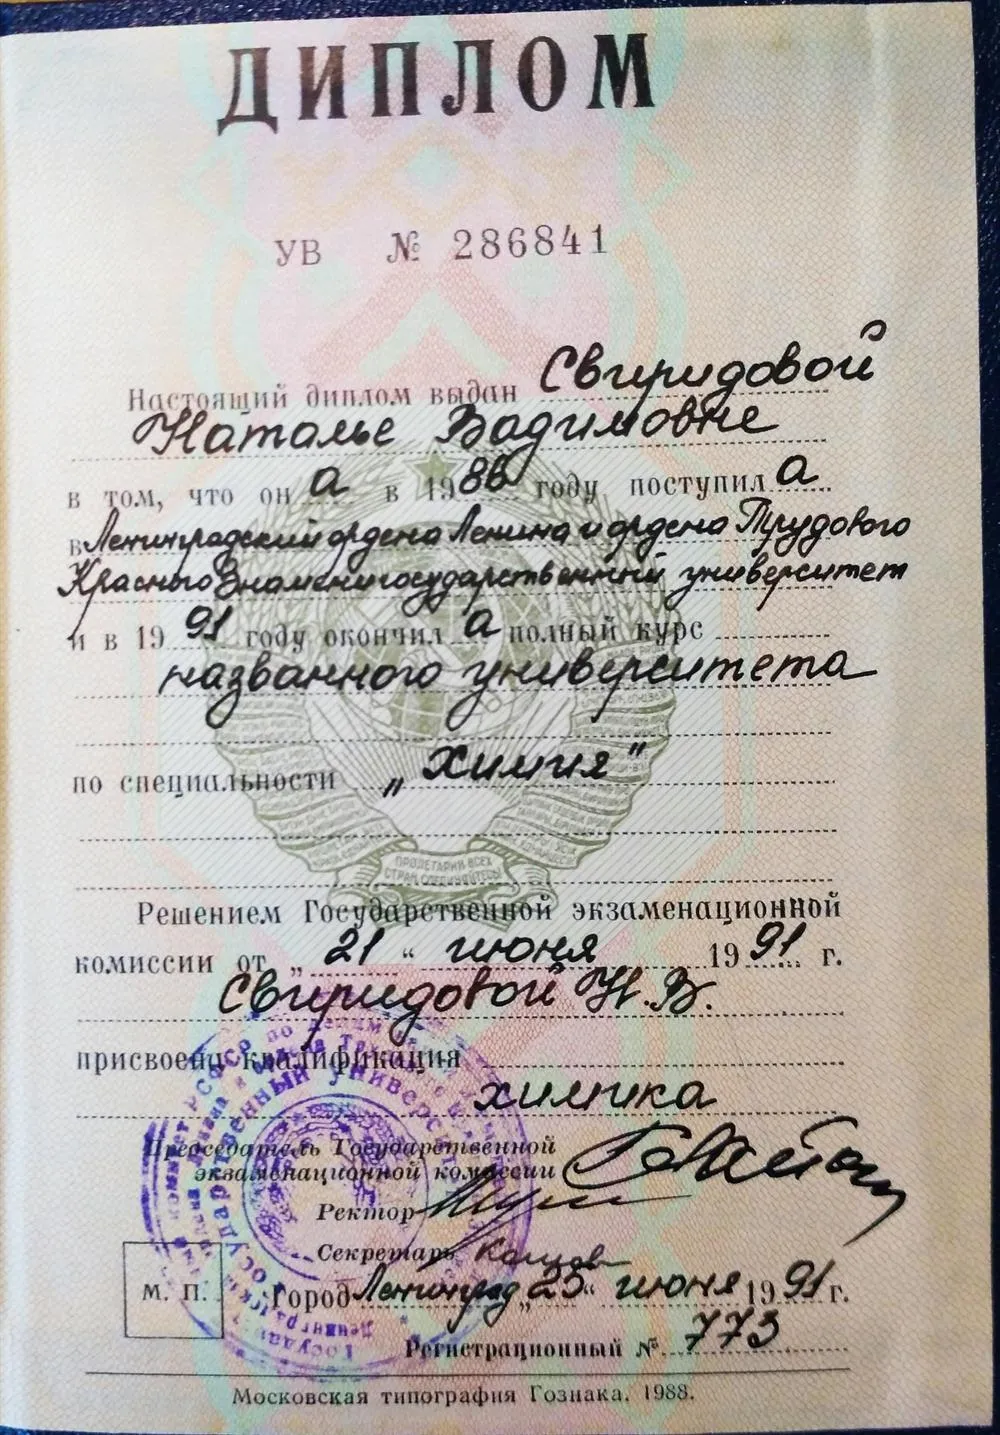 ДИПЛОМ
УВ № 286841
Настоящий диплом выдан Свиридовой
Наталье Вадимовне
в том, что он а в 1986 году поступил а
в Ленинградский ордена Ленина и ордена Трудового
Красного Знамени государственный университет
и в 19 91 году окончил а полный курс
названного университета
по специальности „Химия"
ПРОЛЕТАРИИ ВСЕХ
СТРАН, СОЕДИНЯЙТЕСЬ!
Решением Государственной экзаменационной
комиссии от „21" июня 19 91 г.
Свиридовой Н. В.
присвоена квалификация
химика
Председатель Государственной
экзаменационной комиссии
Ректор
Секретарь
М. П. Город Ленинград „25" июня 19 91 г.
Регистрационный № 773
Московская типография Гознака. 1988.